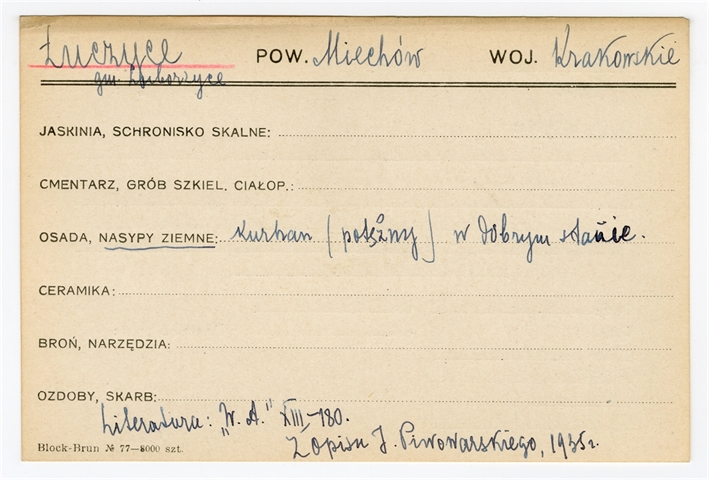 Łuczyce POW. Miechów WOJ. Krakowskie
gm. Zborzyce
JASKINIA, SCHRONISKO SKALNE:
CMENTARZ, GRÓB SZKIEL. CIAŁOP.:
OSADA, NASYPY ZIEMNE: Kurhan (potężny) w dobrym stanie.
CERAMIKA:
BROŃ, NARZĘDZIA:
OZDOBY, SKARB:
Literatura: „W. A." XIII–180.
Z opisu J. Piwowarskiego, 1935 r.
Block-Brun № 77—8000 szt.